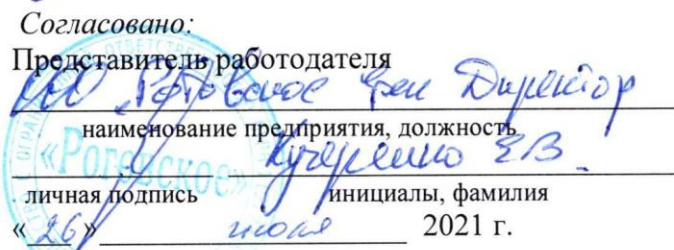 Согласовано:
Представитель работодателя
ООО "Роговское" ген Директор
наименование предприятия, должность
Кучеренко Е.В.
личная подпись инициалы, фамилия
«26» июля 2021 г.
«Роговское»